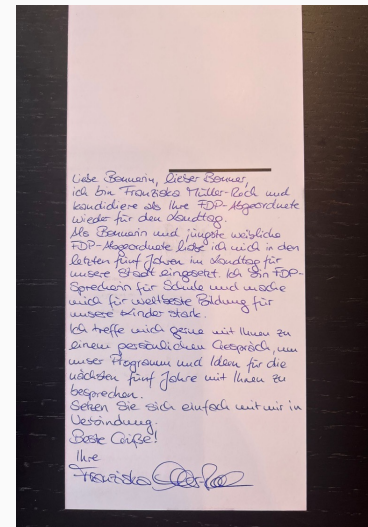 Liebe Bonnerin, lieber Bonner,
ich bin Franziska Müller-Rech und
kandidiere als Ihre FDP-Abgeordnete
wieder für den Landtag.
Als Bonnerin und jüngste weibliche
FDP-Abgeordnete habe ich mich in den
letzten fünf Jahren im Landtag für
unsere Stadt eingesetzt. Ich bin FDP-
Sprecherin für Schule und mache
mich für weltbeste Bildung für
unsere Kinder stark.
Ich treffe mich gerne mit Ihnen zu
einem persönlichen Gespräch, um
unser Programm und Ideen für die
nächsten fünf Jahre mit Ihnen zu
besprechen.
Setzen Sie sich einfach mit mir in
Verbindung.
Beste Grüße!
Ihre
Franziska